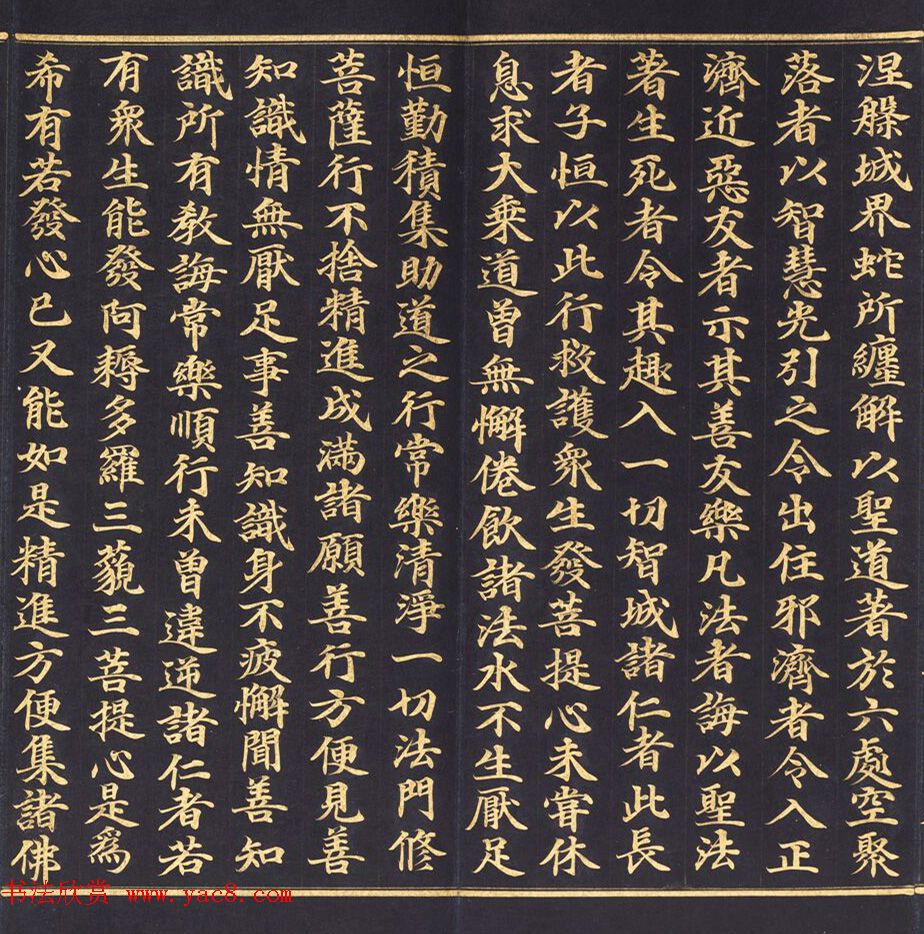 涅槃城界蛇所纏解以聖道著於六處空聚
落者以智慧光引之令出住邪濟者令入正
濟近惡友者示其善友樂凡法者誨以聖法
著生死者令其趣入一切智城諸仁者此長
者子恒以此行救護衆生發菩提心未甞休
息求大乘道曾無懈倦飲諸法水不生厭足
恒勤積集助道之行常樂清淨一切法門修
菩薩行不捨精進成滿諸願善行方便見善
知識情無厭足事善知識身不疲懈聞善知
識所有教誨常樂順行未曾違逆諸仁者若
有衆生能發阿耨多羅三藐三菩提心是爲
希有若發心已又能如是精進方便集諸佛
书法欣赏 www.yac8.com